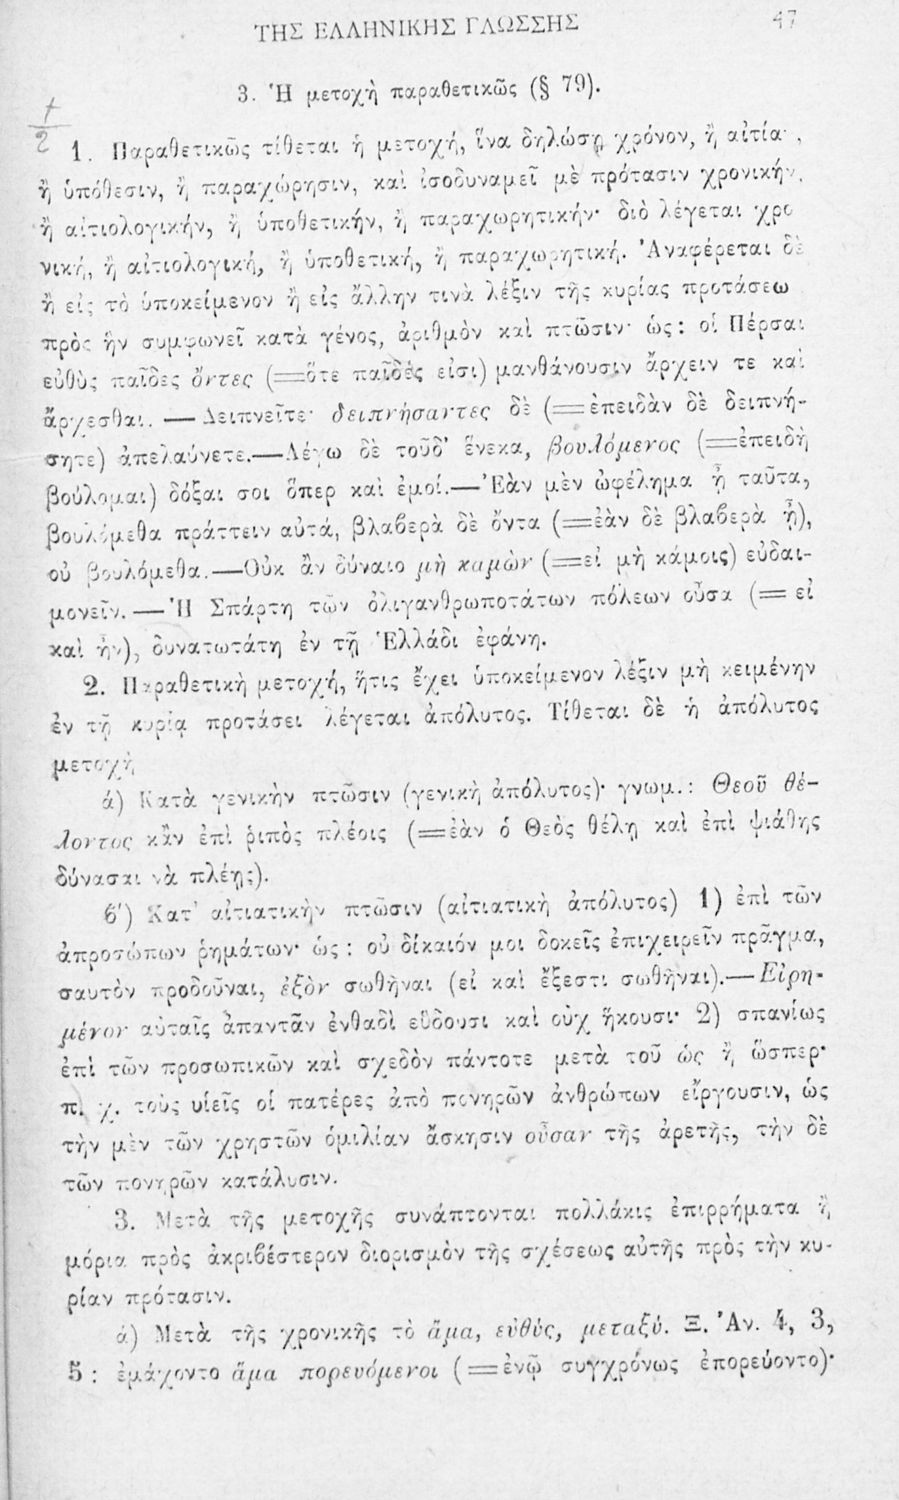 ΤΗΣ ΕΛΛΗΝΙΚΗΣ ΓΛΩΣΣΗΣ 47
3. Ἡ μετοχὴ παραθετικῶς (§ 79).
1
2
1. Παραθετικῶς τίθεται ἡ μετοχή, ἵνα δηλώσῃ χρόνον, ἢ αἰτία ,
ἢ ὑπόθεσιν, ἢ παραχώρησιν, καὶ ἰσοδυναμεῖ μὲ πρότασιν χρονικήν,
ἢ αἰτιολογικήν, ἢ ὑποθετικήν, ἢ παραχωρητικήν· διὸ λέγεται χρο
νική, ἢ αἰτιολογική, ἢ ὑποθετική, ἢ παραχωρητική. Ἀναφέρεται δὲ
ἢ εἰς τὸ ὑποκείμενον ἢ εἰς ἄλλην τινὰ λέξιν τῆς κυρίας προτάσεω
πρὸς ἣν συμφωνεῖ κατὰ γένος, ἀριθμὸν καὶ πτῶσιν· ὡς: οἱ Πέρσαι
εὐθὺς παῖδες ὄντες (=ὅτε παῖδές εἰσι) μανθάνουσιν ἄρχειν τε καὶ
ἄρχεσθαι. — Δειπνεῖτε· δειπνήσαντες δὲ (=ἐπειδὰν δὲ δειπνή-
σητε) ἀπελαύνετε.—Λέγω δὲ τοῦδ' ἕνεκα, βουλόμενος (=ἐπειδὴ
βούλομαι) δόξαι σοι ὅπερ καὶ ἐμοί.—Ἐὰν μὲν ὠφέλημα ᾖ ταῦτα,
βουλόμεθα πράττειν αὐτά, βλαβερὰ δὲ ὄντα (=ἐὰν δὲ βλαβερὰ ᾖ),
οὐ βουλόμεθα.—Οὐκ ἂν δύναιο μὴ καμὼν (=εἰ μὴ κάμοις) εὐδαι-
μονεῖν. — Ἡ Σπάρτη τῶν ὀλιγανθρωποτάτων πόλεων οὖσα (= εἰ
καὶ ἦν), δυνατωτάτη ἐν τῇ Ἑλλάδι ἐφάνη.
2. Παραθετικὴ μετοχή, ἥτις ἔχει ὑποκείμενον λέξιν μὴ κειμένην
ἐν τῇ κυρίᾳ προτάσει λέγεται ἀπόλυτος. Τίθεται δὲ ἡ ἀπόλυτος
μετοχὴ
ά) Κατὰ γενικὴν πτῶσιν (γενικὴ ἀπόλυτος)· γνωμ.: Θεοῦ θέ-
λοντος κἂν ἐπὶ ῥιπὸς πλέοις (=ἐὰν ὁ Θεὸς θέλῃ καὶ ἐπὶ ψιάθης
δύνασαι νὰ πλέῃς).
β') Κατ' αἰτιατικὴν πτῶσιν (αἰτιατικὴ ἀπόλυτος) 1) ἐπὶ τῶν
ἀπροσώπων ῥημάτων· ὡς : οὐ δίκαιόν μοι δοκεῖς ἐπιχειρεῖν πρᾶγμα,
σαυτὸν προδοῦναι, ἐξὸν σωθῆναι (εἰ καὶ ἔξεστι σωθῆναι).—Εἰρη-
μένον αὐταῖς ἀπαντᾶν ἐνθαδὶ εὕδουσι καὶ οὐχ ἥκουσι· 2) σπανίως
ἐπὶ τῶν προσωπικῶν καὶ σχεδὸν πάντοτε μετὰ τοῦ ὡς ἢ ὥσπερ·
π. χ. τοὺς υἱεῖς οἱ πατέρες ἀπὸ πονηρῶν ἀνθρώπων εἴργουσιν, ὡς
τὴν μὲν τῶν χρηστῶν ὁμιλίαν ἄσκησιν οὖσαν τῆς ἀρετῆς, τὴν δὲ
τῶν πονηρῶν κατάλυσιν.
3. Μετὰ τῆς μετοχῆς συνάπτονται πολλάκις ἐπιρρήματα ἢ
μόρια πρὸς ἀκριβέστερον διορισμὸν τῆς σχέσεως αὐτῆς πρὸς τὴν κυ-
ρίαν πρότασιν.
ά) Μετὰ τῆς χρονικῆς τὸ ἅμα, εὐθύς, μεταξύ. Ξ. Ἀν. 4, 3,
5 : ἐμάχοντο ἅμα πορευόμενοι (=ἐνῷ συγχρόνως ἐπορεύοντο)·